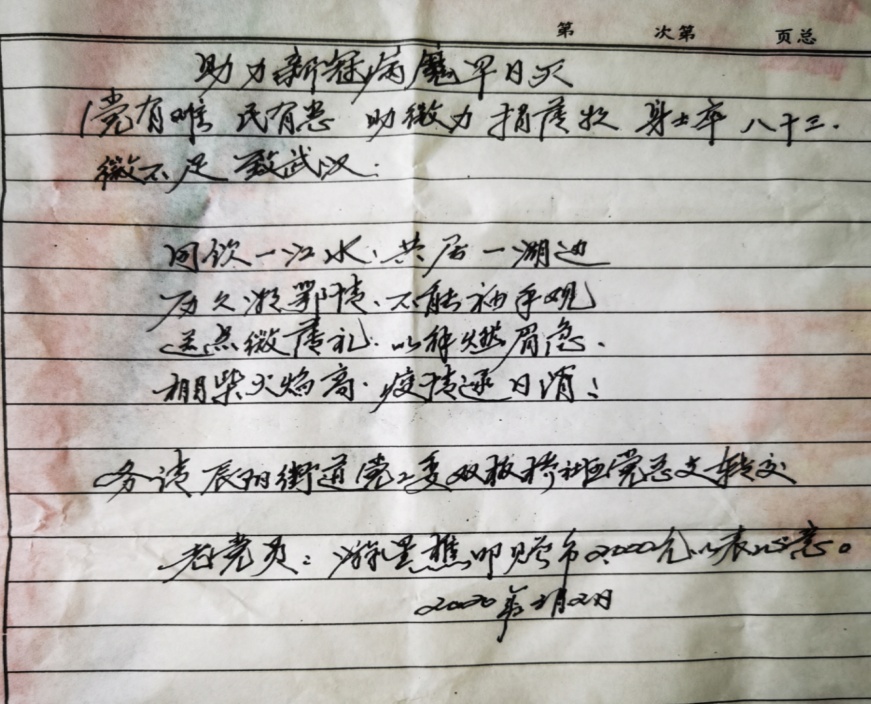 第 次第 页总
助力新冠病魔早日灭
党有难 民有患 助微力 捐 身 八十三.
微不足 致武汉.
同饮一江水、共居一湖边
历久凝鄂情、不能袖手观
送点微薄礼.以解燃眉急.
棚柴火焰高.疫情逐日消!
务请辰阳街道党工委双板桥社区党总支转交
老党员: 币2000元以表心意。
2020年2月2日